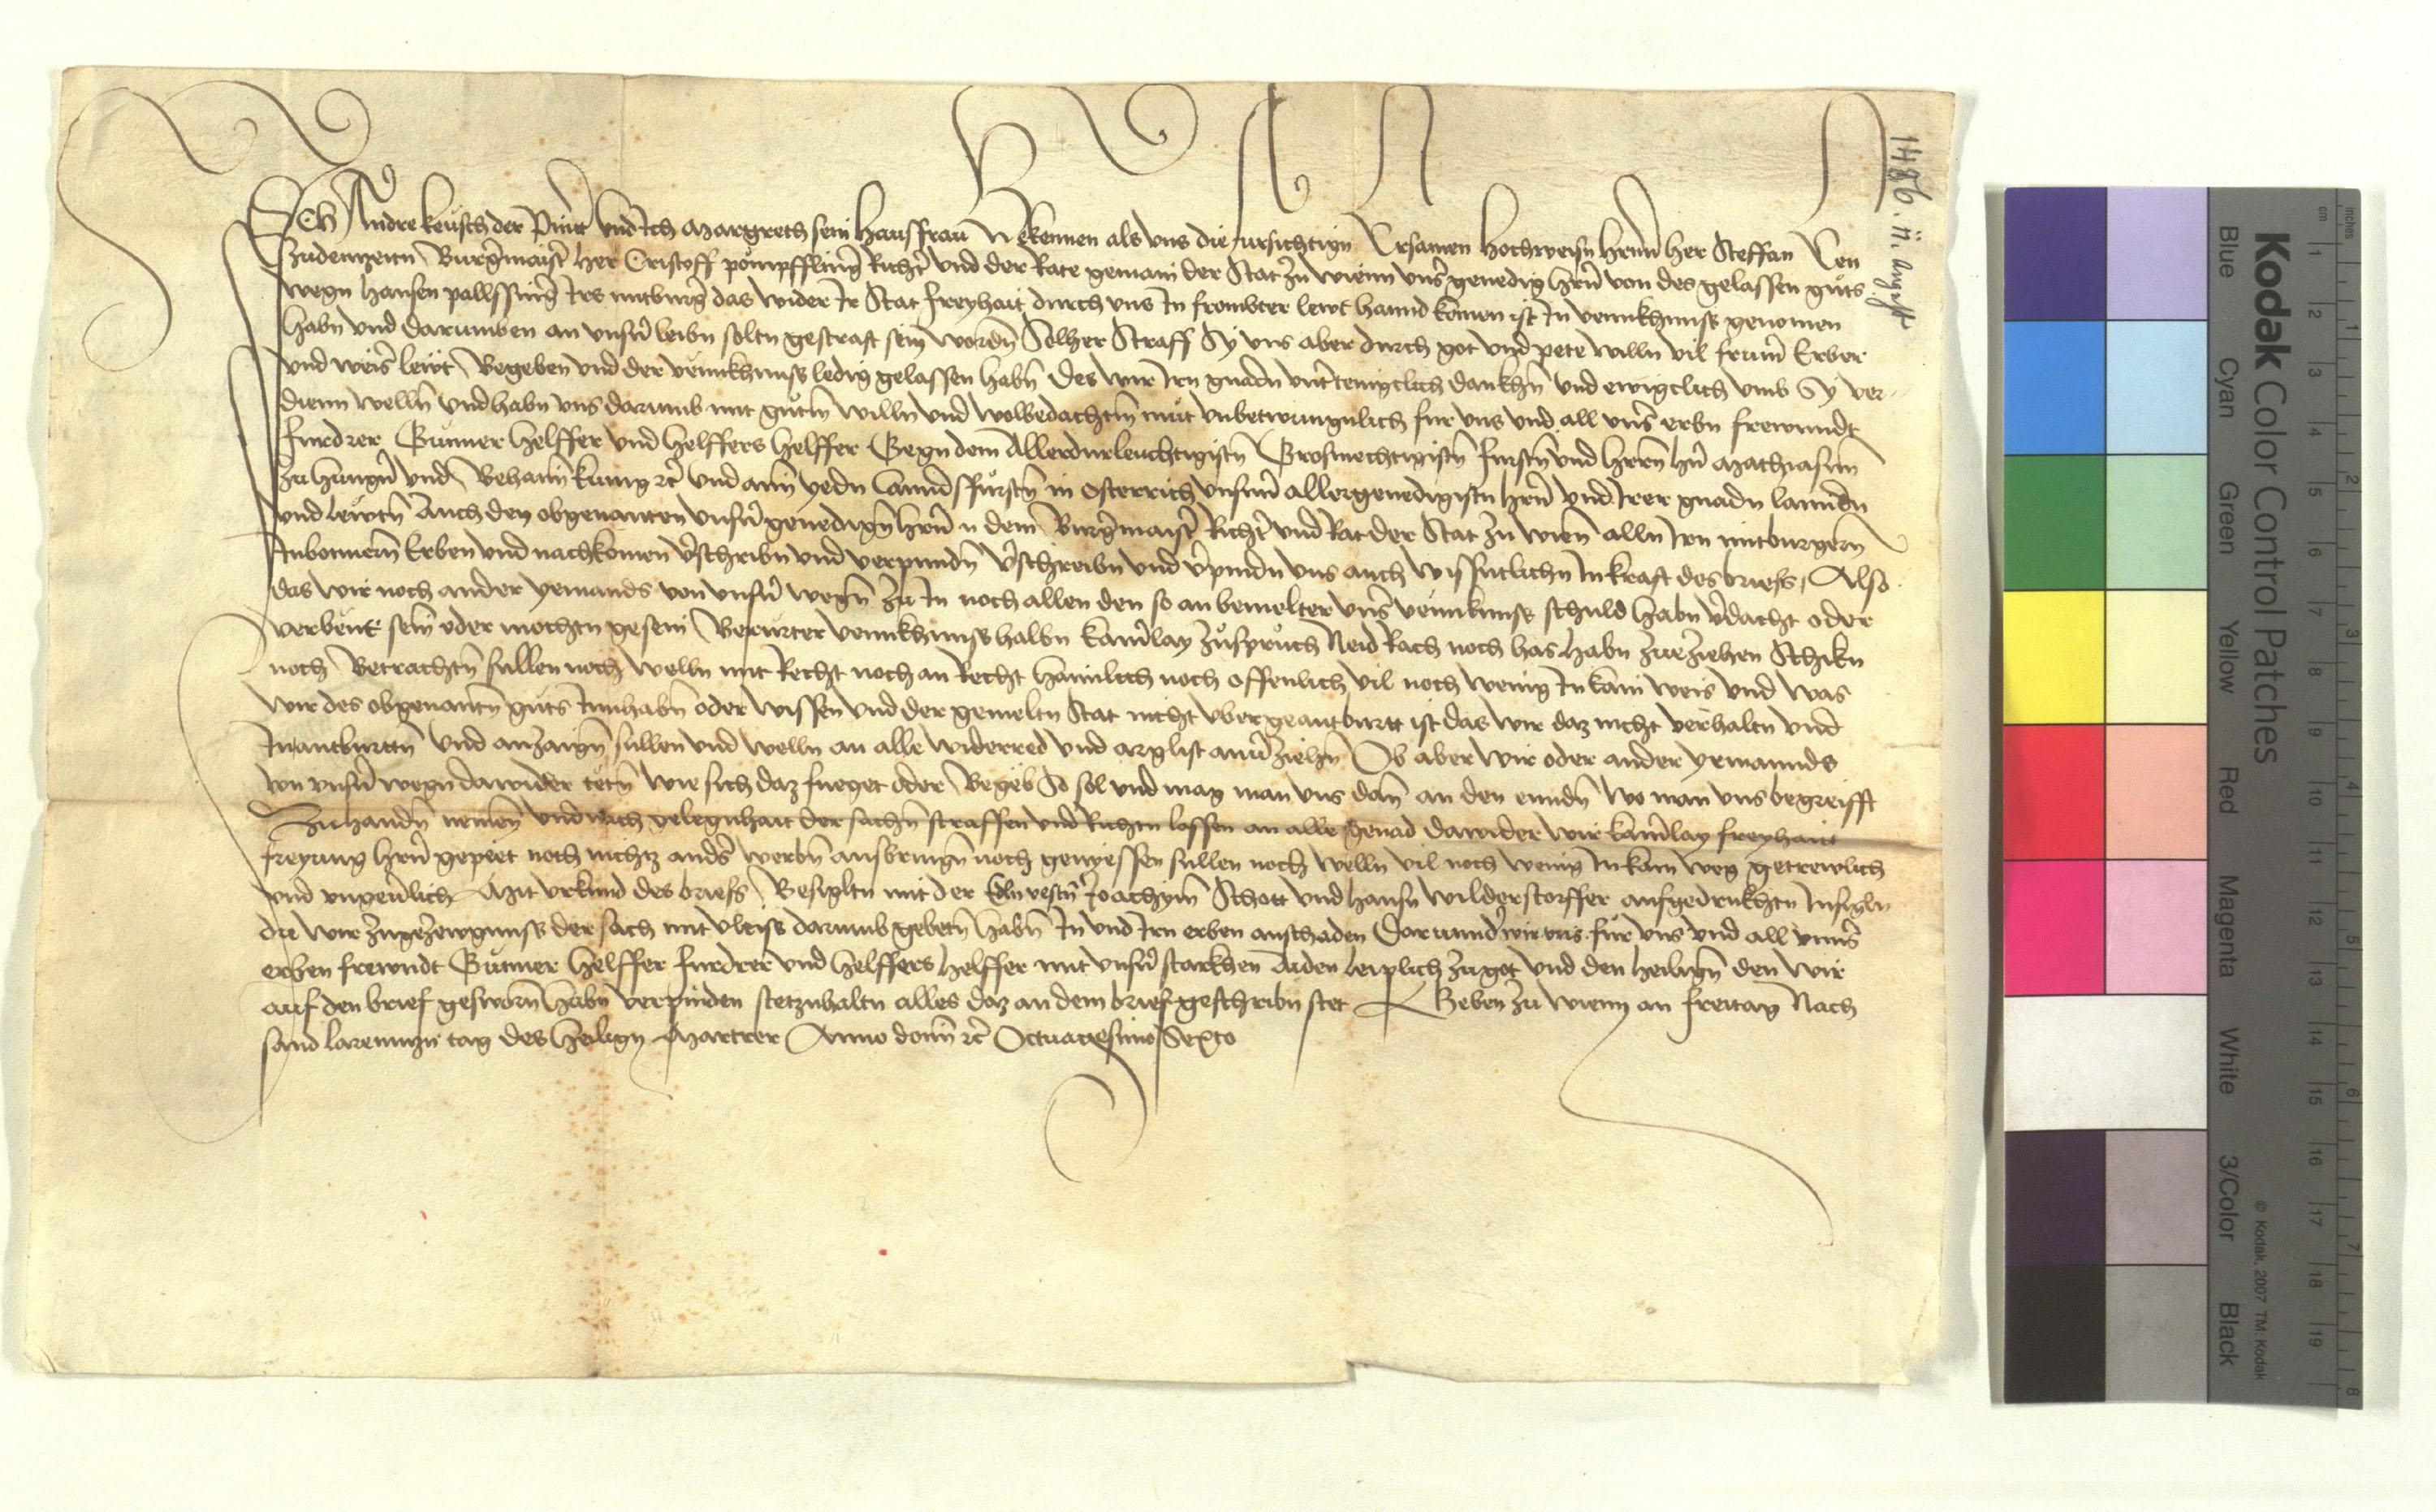 1486. 11. august
Ich Andre keusch der Pintt und Ich Margreth sein hausfrau Bekennen als uns die fursichtign Ersamen hochweisn hrnn her Steffan Een
zudennzeitn Burgermaistr her Cristoff pömpfflinger Richtr und der Rate gemain der Stat zu wienn unsr genedig hrn von des gelassen guts
wegn hansen pallssinger Irs mitburgr das wider Ir Stat freyhait durch uns In frombter lewt hannd komen ist In vennkhnuss genomen
habn und darumben an unsrn leibn soltn gestraft sein wordn Solher Straff Sy uns aber durch got und pete willn vil frumr Erber
und weisr lewt Begeben und der vennkhnuss ledig gelassen habn des wir Irn gnadn untrtenigclich dankhn und ewigclich umb Sy ver-
dienn welln und habn uns darumb mit gutm willn und wolbedachtm mut unbetwungnlich fur uns und all unsr erbn frewnndt
furdrer Gunner helffer und helffers helffer Gegn dem Allerdurleuchtigistn Grosmechtigistn furstn und hrrn hrn Mathiasen
zu hungrn und Behaim kunig etc und aim yedn lannd sfurstn in Osterrich unserm allergenedigistn hrn und Irer gnadn lanndn
und lewtn Auch den obgenanten unsrn genedign hrn n dem Burgermaistr Richtr und Rat der Stat zu wienn alln Irn mitburgern
Inbonnern Erben und nachkomen vrschribn und verpundn vrschreibn und vrpindn uns auch wissntlichn In kraft des briefs, Also
das wir noch ander yemands von unsrn wegn zu In noch allen den so an bemelter unsr vennknuss schuld habn vrdacht oder
verdent sein oder mochtn gesein Berurter vennkhnuss halbn kainrlay zuspruch Neid Rach noch has habn zueziehen Schikn
noch Betrachtn sullen noch welln mit Recht noch an Recht haimlich noch offenlich vil noch wenig In kain weis und was
wir des obgenantn guts Innhabn oder wissen und der gemeltn Stat nicht ubergeantburtt ist das wir daz nicht verhaltn und
In antburttn und anzaign sullen und welln an alle widerred und arglist ausziehn Ob aber wir oder ander yemannds
von unsrn wegn dawider tetn wie sich daz fueget oder Begeb So sol und mag man uns dann an den ennden wo man uns begreifft
zuhandn nemen und nach gelegnhait der sachn straffen und Richtn lassen an alle genad dawider wir kainrlay freyhait
freyung hrn gepiet noch nichtz andrs werbn ausbringn noch geniessen sullen noch welln vil noch wenig In kain weg getrewlich
und ungeverlich Mit urkund des briefs Besigltn mit der Edln vestn Joachym Schott und hansn wilderstorffer aufgedrukhtn Insigln
die wir zugezewgnuss der sach mit vleiss darumb gebetn habn In und Irn erben anschaden Darunnd wir uns fur uns und all unnsr
erben frewndt Gunner helffer furdrer und helffers helffer mit unsrn starkhen Aiden leiplich zu got und den heilign den wir
auf den brief gesworn habn verpinden stetzuhaltn alles daz an dem brief geschribn stet Geben zu wienn an freitag Nach
sand larennzn tag des heilign Martrer Anno domini etc Octuagesimo Sexto
Kodak Color Control Patches
Blue Cyan Green Yellow Red Magenta White 3/Color Black
© Kodak, 2007 TM: Kodak
Inches 1 2 3 4 5 6 7 8
cm 1 2 3 4 5 6 7 8 9 10 11 12 13 14 15 16 17 18 19